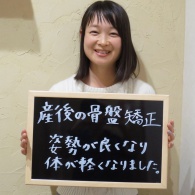 産後の骨盤矯正
姿勢が良くなり
体が軽くなりました。